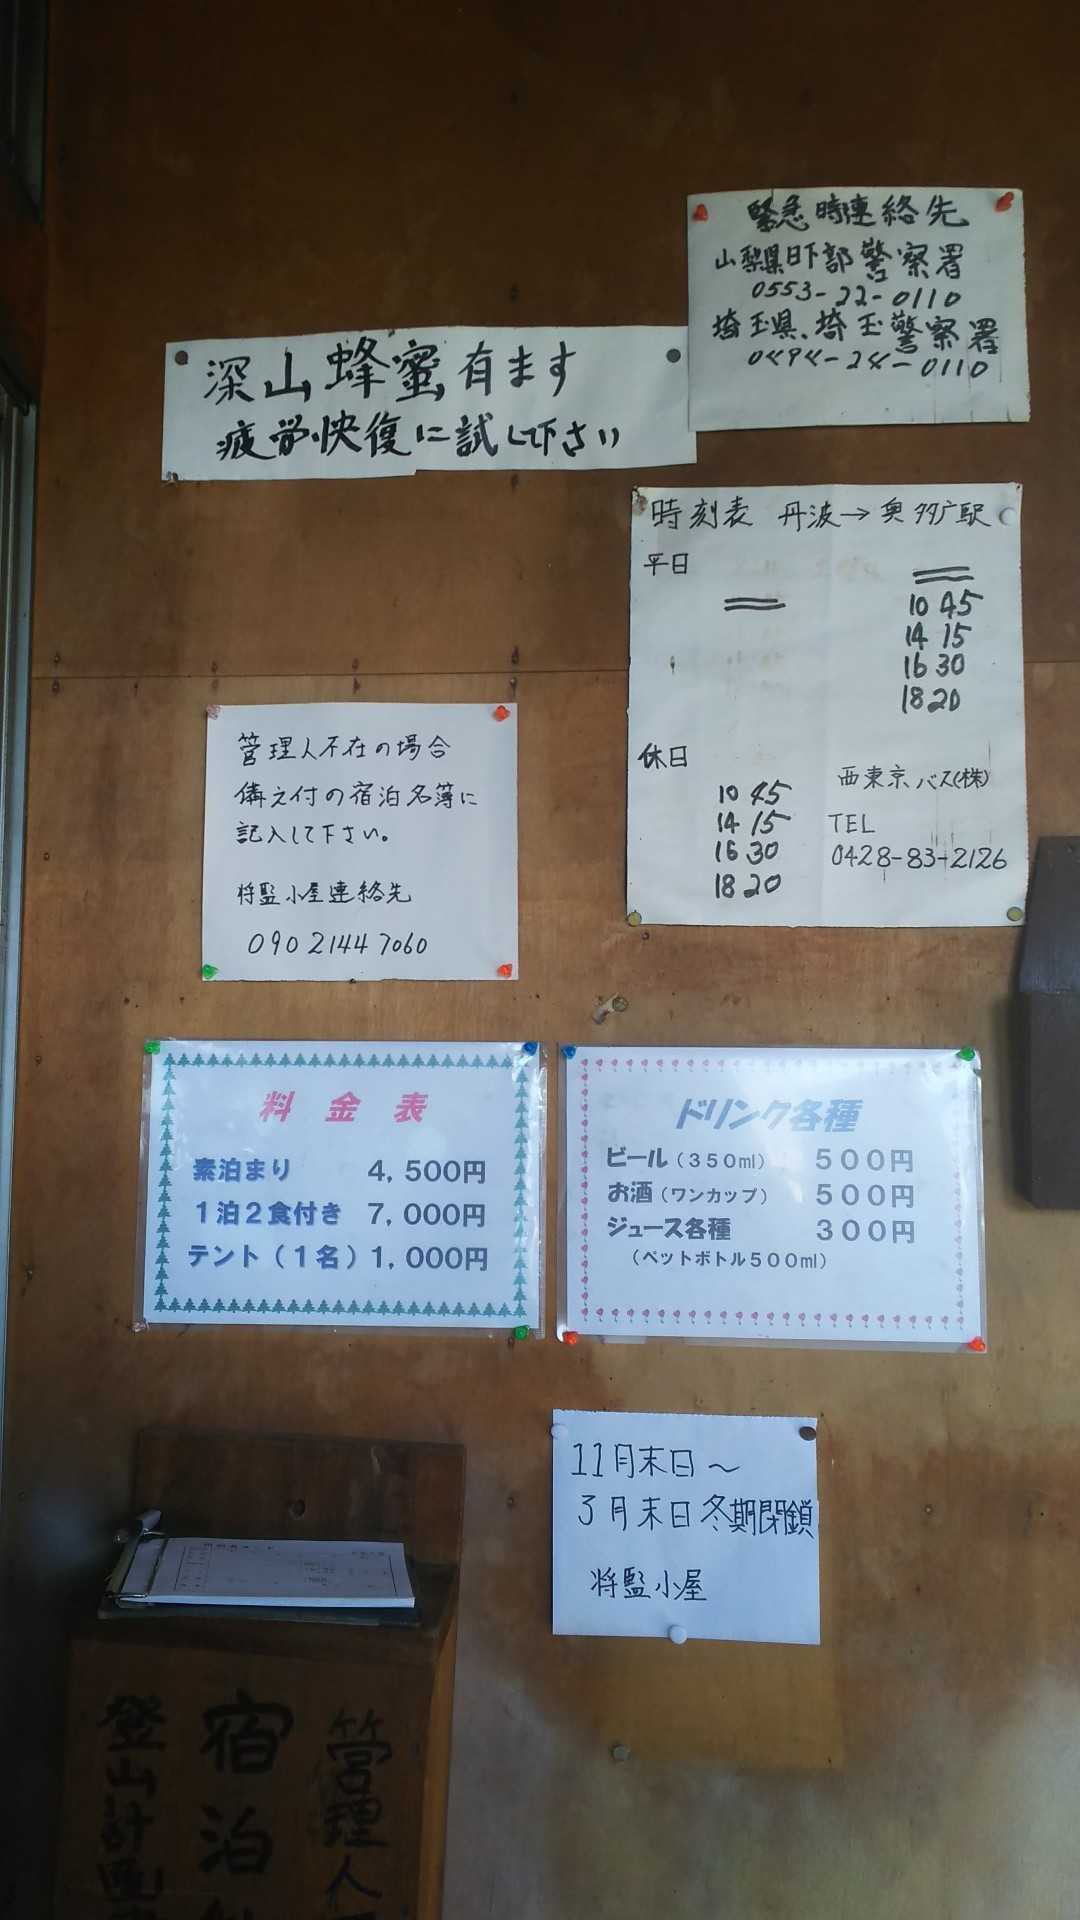 緊急時連絡先
山梨県日下部警察署
0553-22-0110
埼玉県、埼玉警察署
0494-24-0110
深山蜂蜜有ます
疲労快復に試して下さい
時刻表 丹波→奥多摩駅
平日
10 45
14 15
16 30
18 20
休日
10 45
14 15
16 30
18 20
西東京バス(株)
TEL
0428-83-2126
管理人不在の場合
備え付の宿泊名簿に
記入して下さい。
将監小屋連絡先
090 2144 7060
料金表
素泊まり 4,500円
1泊2食付き 7,000円
テント(1名) 1,000円
ドリンク各種
ビール(350ml) 500円
お酒(ワンカップ) 500円
ジュース各種 300円
(ペットボトル500ml)
11月末日～
3月末日冬期閉鎖
将監小屋
管理人
宿泊
登山計画